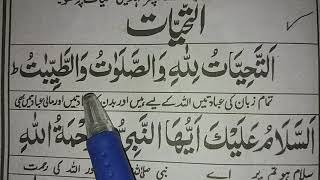 التحيات
التَّحِيَّاتُ لِلّٰهِ وَالصَّلَوٰتُ وَالطَّيِّبٰتُ ط
تمام زبان کی عبادتیں اللہ کے لیے ہیں اور بدن کی عبادتیں اور مالی عبادتیں بھی
اَلسَّلَامُ عَلَيْكَ اَيُّهَا النَّبِيُّ وَرَحْمَةُ اللّٰهِ
سلام ہو تم پر اے نبی اور اللہ کی رحمت